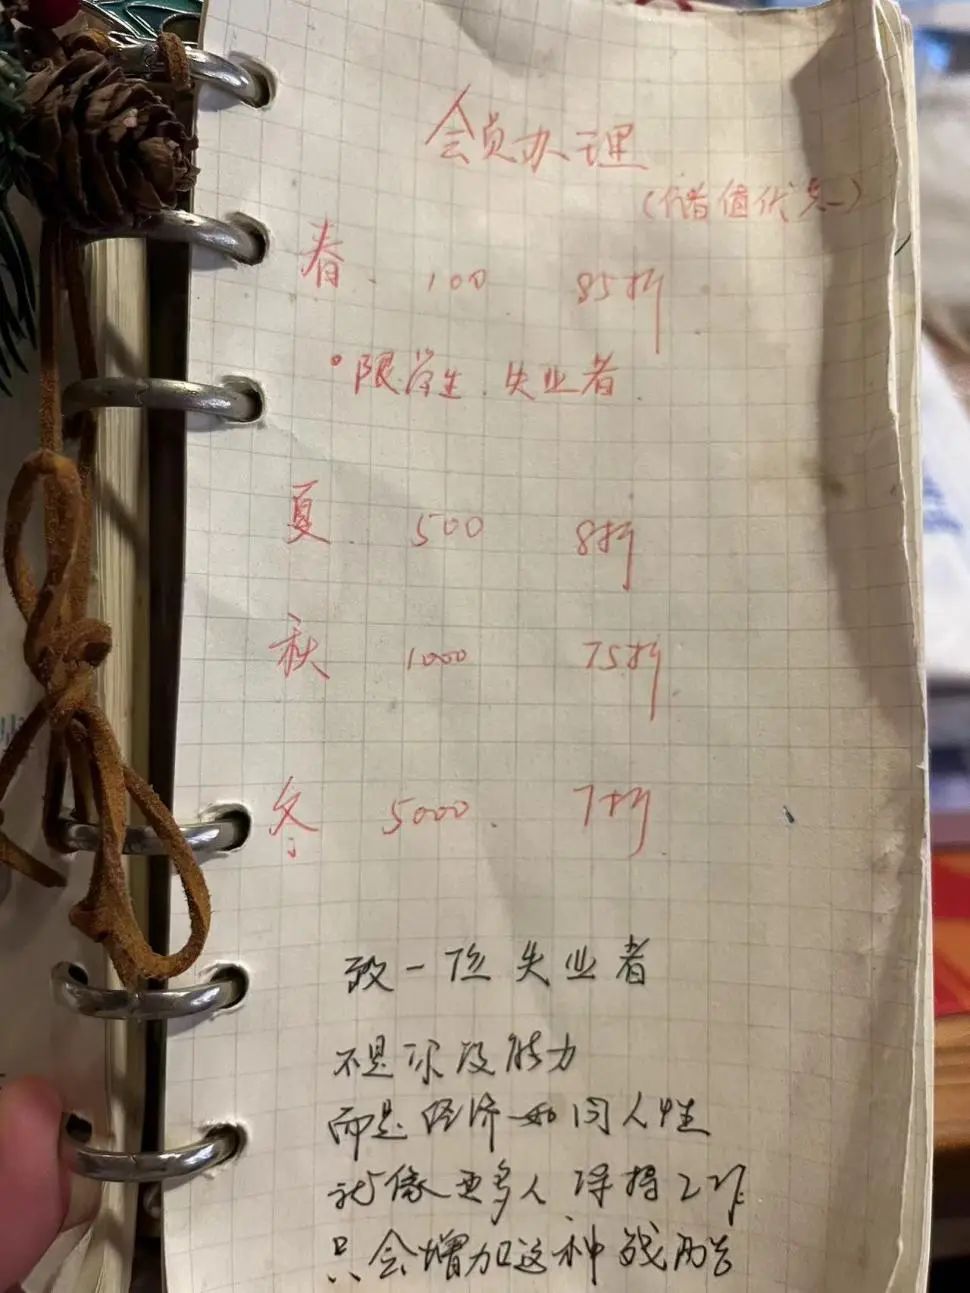 会员办理
(储值优惠)
春. 100 85折
•限学生.失业者.
夏. 500 8折
秋 1000 75折
冬 5000. 7折
致一位失业者
不是你没能力
而是经济如同人性
就像更多人 得工作
只会增加这种残酷